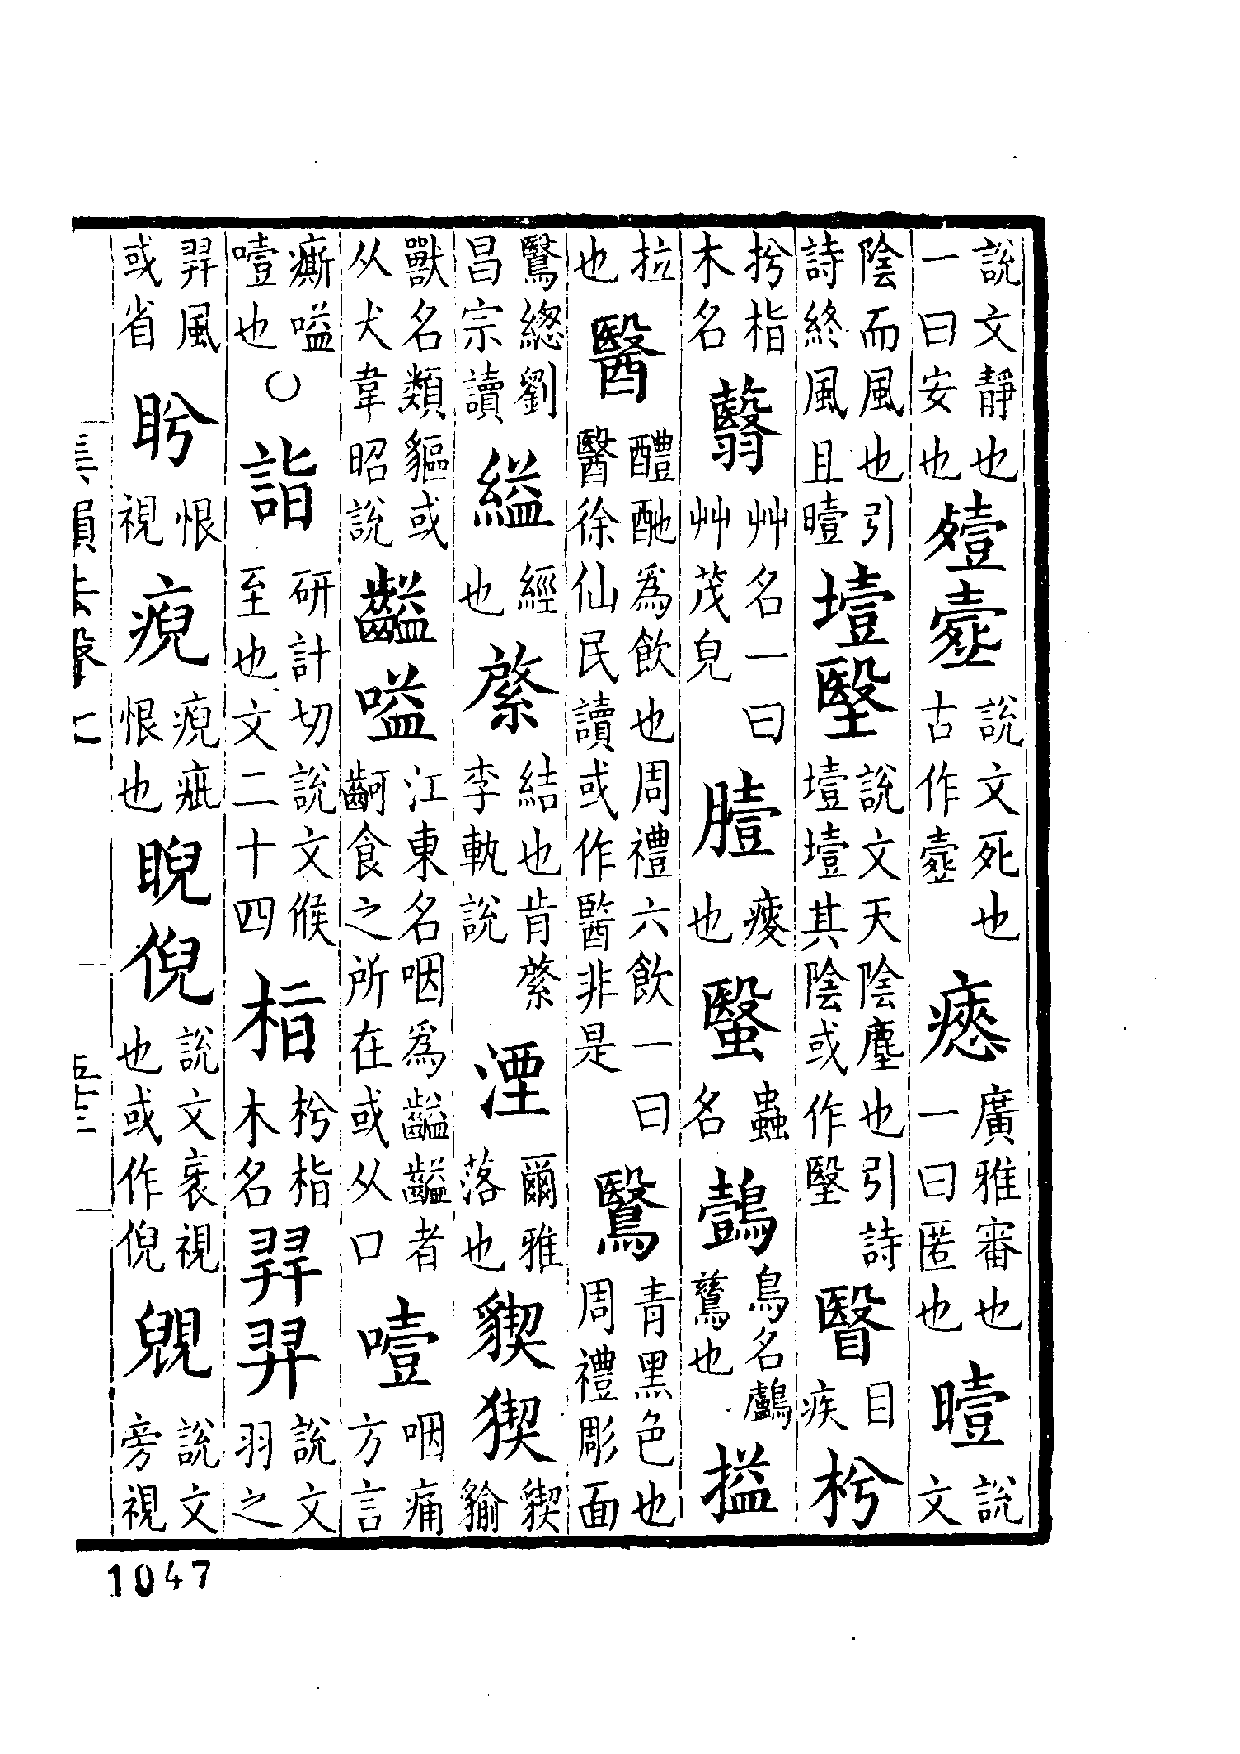 說文靜也一曰安也殪𡔷說文死也古作𡔷瘱廣雅審也一曰匿也曀說文
陰而風也引詩終風且曀𡑞說文天陰塵也引詩𡑞𡑞其陰或作瞖目疾枍
枍栺木名翳艸名一曰艸茂皃瘦也蟲名鷧鳥名鸕鶿也搤
拉也醫醴酏為飲也周禮六飲一曰醫徐仙民讀或作醫非是鷖青黑色也周禮彫面
鷖緫劉昌宗讀縊經也綮結也肯綮李軌說湮爾雅落也貏猰猰貐
獸名類貙或从犬韋昭說齸嗌江東名咽為齸齸者齝食之所在或从口噎咽痛方言
廝嗌噎也○詣研計切說文候至也文二十四栺枍栺木名羿羿說文羽之
羿風或省盻恨視恨也睨倪說文衺視也或作倪說文旁視
集韻去聲七
五十三
1047